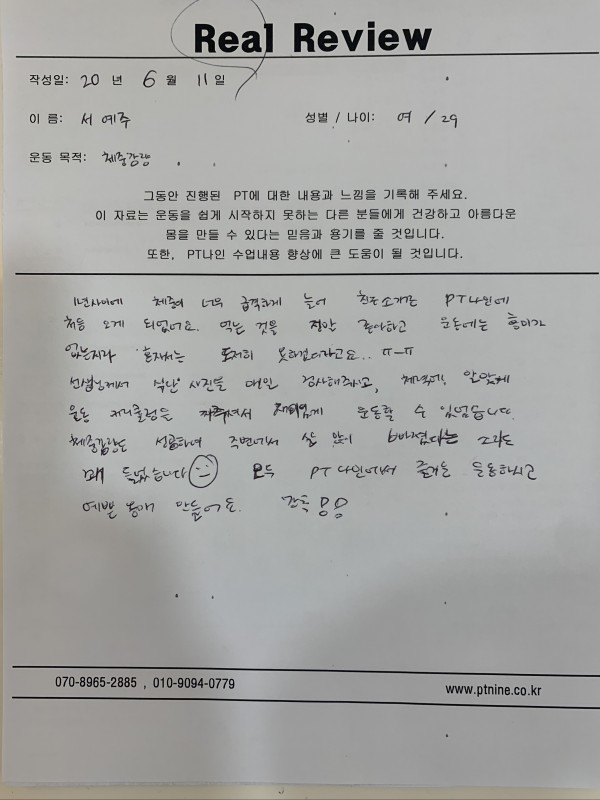 Real Review
작성일: 20 년 6 월 11 일
이 름: 서예주
성별 / 나이: 여 / 29
운동 목적: 체중감량
그동안 진행된 PT에 대한 내용과 느낌을 기록해 주세요.
이 자료는 운동을 쉽게 시작하지 못하는 다른 분들에게 건강하고 아름다운
몸을 만들 수 있다는 믿음과 용기를 줄 것입니다.
또한, PT나인 수업내용 향상에 큰 도움이 될 것입니다.
1년사이에 체중이 너무 급격하게 늘어 친구소개로 PT나인에
처음 오게 되었어요. 먹는 것을 정말 좋아하고 운동에는 흥미가
없는지라 혼자서는 도저히 못하겠더라고요.. ㅠㅡㅠ
선생님께서 식단 사진을 매일 검사해주시고, 체력에 알맞게
운동 커리큘럼을 짜주셔서 재미있게 운동할 수 있었습니다.
체중감량도 성공하여 주변에서 살 많이 빠졌다는 소리도
꽤 들었습니다 모두 PT나인에서 즐거운 운동하시고
예쁜 몸매 만들어요.
070-8965-2885 , 010-9094-0779
www.ptnine.co.kr